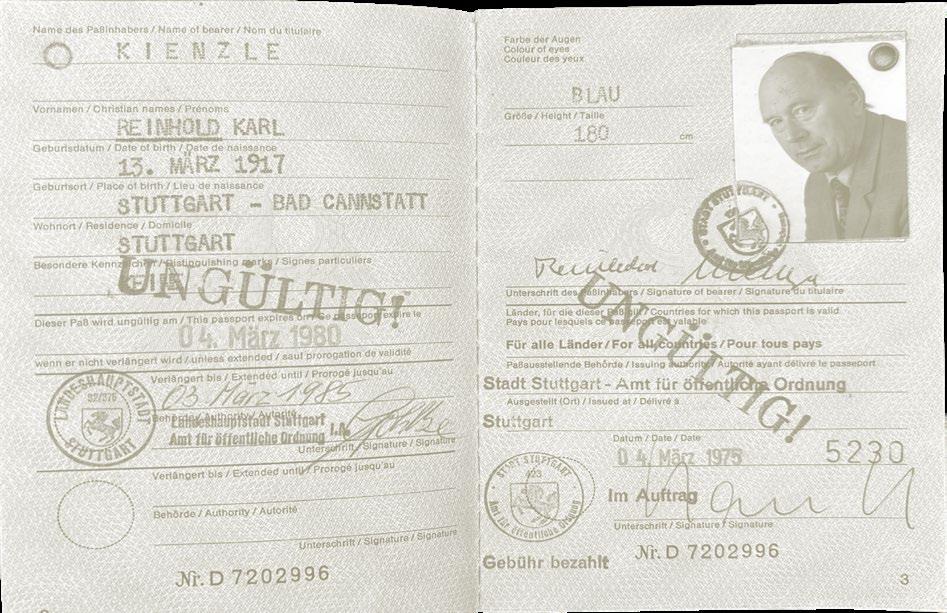 Name des Paßinhabers / Name of bearer / Nom du titulaire
KIENZLE
Vornamen / Christian names / Prénoms
REINHOLD KARL
Geburtsdatum / Date of birth / Date de naissance
13. MÄRZ 1917
Geburtsort / Place of birth / Lieu de naissance
STUTTGART - BAD CANNSTATT
Wohnort / Residence / Domicile
STUTTGART
Besondere Kennzeichen / Distinguishing marks / Signes particuliers
UNGÜLTIG!
Dieser Paß wird ungültig am / This passport expires on / Ce passeport expire le
04. März 1980
wenn er nicht verlängert wird / unless extended / sauf prorogation de validité
Verlängert bis / Extended until / Prorogé jusqu'au
03. März 1985
LANDESHAUPTSTADT
STUTTGART
Behörde / Authority / Autorité
Landeshauptstadt Stuttgart
Amt für öffentliche Ordnung i.A.
Unterschrift / Signature / Signature
Verlängert bis / Extended until / Prorogé jusqu'au
Behörde / Authority / Autorité
Unterschrift / Signature / Signature
Nr. D 7202996
Farbe der Augen
Colour of eyes
Couleur des yeux
BLAU
Größe / Height / Taille
180 cm
Unterschrift des Paßinhabers / Signature of bearer / Signature du titulaire
Länder, für die dieser Paß gilt / Countries for which this passport is valid
Pays pour lesquels ce passeport est valable
UNGÜLTIG!
Für alle Länder / For all countries / Pour tous pays
Paßausstellende Behörde / Issuing authority / Autorité ayant délivré le passeport
Stadt Stuttgart - Amt für öffentliche Ordnung
Ausgestellt (Ort) / Issued at / Délivré à
Stuttgart
Datum / Date / Date
04. März 1975
5230
STADT STUTTGART
423
Amt für öffentliche Ordnung
Im Auftrag
Unterschrift / Signature / Signature
Gebühr bezahlt
Nr. D 7202996
3